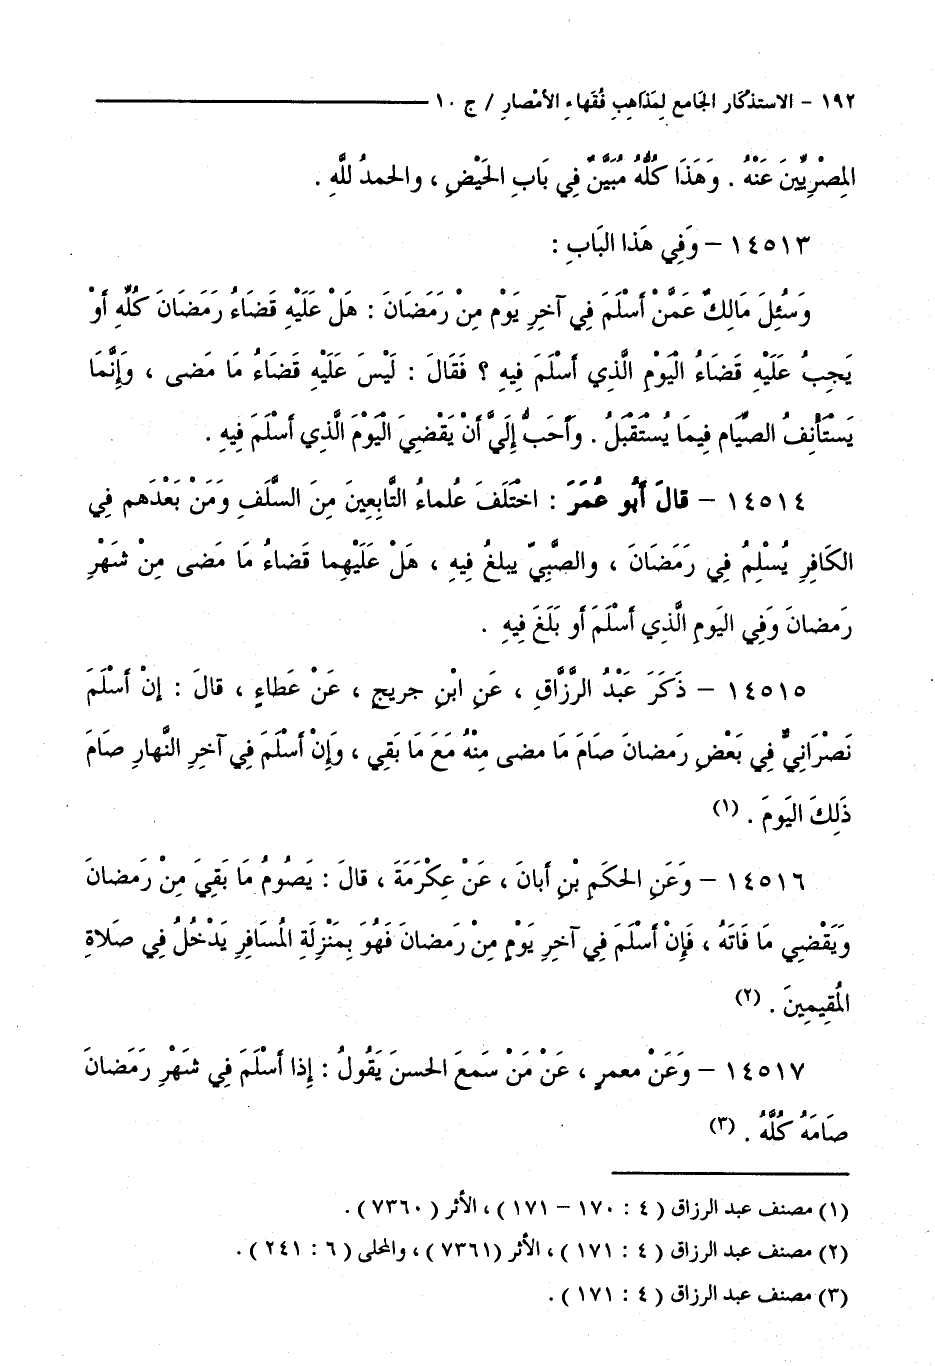 ١٩٢ – الاستذكار الجَامع لِمَذاهِبِ فُقَهاءِ الأمْصارِ / ج ١٠
المِصْرِيِّينَ عَنْهُ . وَهَذَا كُلُّهُ مُبَيَّنٌ فِي بَابِ الحَيْضِ ، والحمدُ للَّهِ .
١٤٥١٣ – وَفِي هَذا البَابِ :
وَسُئِلَ مَالِكٌ عَمَّنْ أَسْلَمَ فِي آخِرِ يَوْمٍ مِنْ رَمَضَانَ : هَلْ عَلَيْهِ قَضَاءُ رَمَضَانَ كُلِّهِ أَوْ
يَجِبُ عَلَيْهِ قَضَاءُ الْيَوْمِ الَّذِي أَسْلَمَ فِيهِ ؟ فَقَالَ : لَيْسَ عَلَيْهِ قَضَاءُ مَا مَضى ، وَإِنَّمَا
يَسْتَأْنِفُ الصِّيَامَ فِيمَا يُسْتَقْبَلُ . وَأَحَبُّ إِلَيَّ أَنْ يَقْضِيَ الْيَوْمَ الَّذِي أَسْلَمَ فِيهِ .
١٤٥١٤ – قالَ أَبُو عُمَرَ : اخْتَلَفَ عُلماءُ التَّابِعِينَ مِنَ السَّلَفِ وَمَنْ بَعْدَهم فِي
الكَافِرِ يُسْلِمُ فِي رَمَضَانَ ، والصَّبِيِّ يبلغُ فِيهِ ، هَلْ عَلَيْهِما قَضاءُ مَا مَضى مِنْ شَهْرِ
رَمضانَ وَفِي اليَومِ الَّذِي أَسْلَمَ أو بَلَغَ فِيهِ .
١٤٥١٥ – ذَكَرَ عَبْدُ الرَّزَّاقِ ، عَنِ ابْنِ جريجٍ ، عَنْ عَطاءٍ ، قالَ : إنْ أَسْلَمَ
نَصْرَانِيٌّ فِي بَعْضِ رَمضانَ صَامَ مَا مضى مِنْهُ مَعَ مَا بَقِي ، وَإِنْ أَسْلَمَ فِي آخِرِ النَّهارِ صَامَ
ذَلِكَ اليَومَ . (١)
١٤٥١٦ – وَعَنِ الحَكَمِ بْنِ أبانَ ، عَنْ عِكْرَمَةَ ، قالَ : يَصُومُ مَا بَقِيَ مِنْ رَمَضانَ
وَيَقْضِي مَا فَاتَهُ ، فَإِنْ أَسْلَمَ فِي آخِرِ يَوْمٍ مِنْ رَمضانَ فَهُوَ بِمَنْزِلَةِ المُسَافِرِ يَدْخُلُ فِي صَلاةِ
المُقِيمِينَ . (٢)
١٤٥١٧ – وَعَنْ معمرٍ ، عَنْ مَنْ سَمعَ الحسنَ يَقُولُ : إذا أَسْلَمَ فِي شَهْرِ رَمَضانَ
صَامَهُ كُلَّهُ . (٣)
(١) مصنف عبد الرزاق ( ٤ : ١٧٠ – ١٧١ ) ، الأثر ( ٧٣٦٠ ) .
(٢) مصنف عبد الرزاق ( ٤ : ١٧١ ) ، الأثر (٧٣٦١ ) ، والمحلى ( ٦ : ٢٤١ ) .
(٣) مصنف عبد الرزاق ( ٤ : ١٧١ ) .